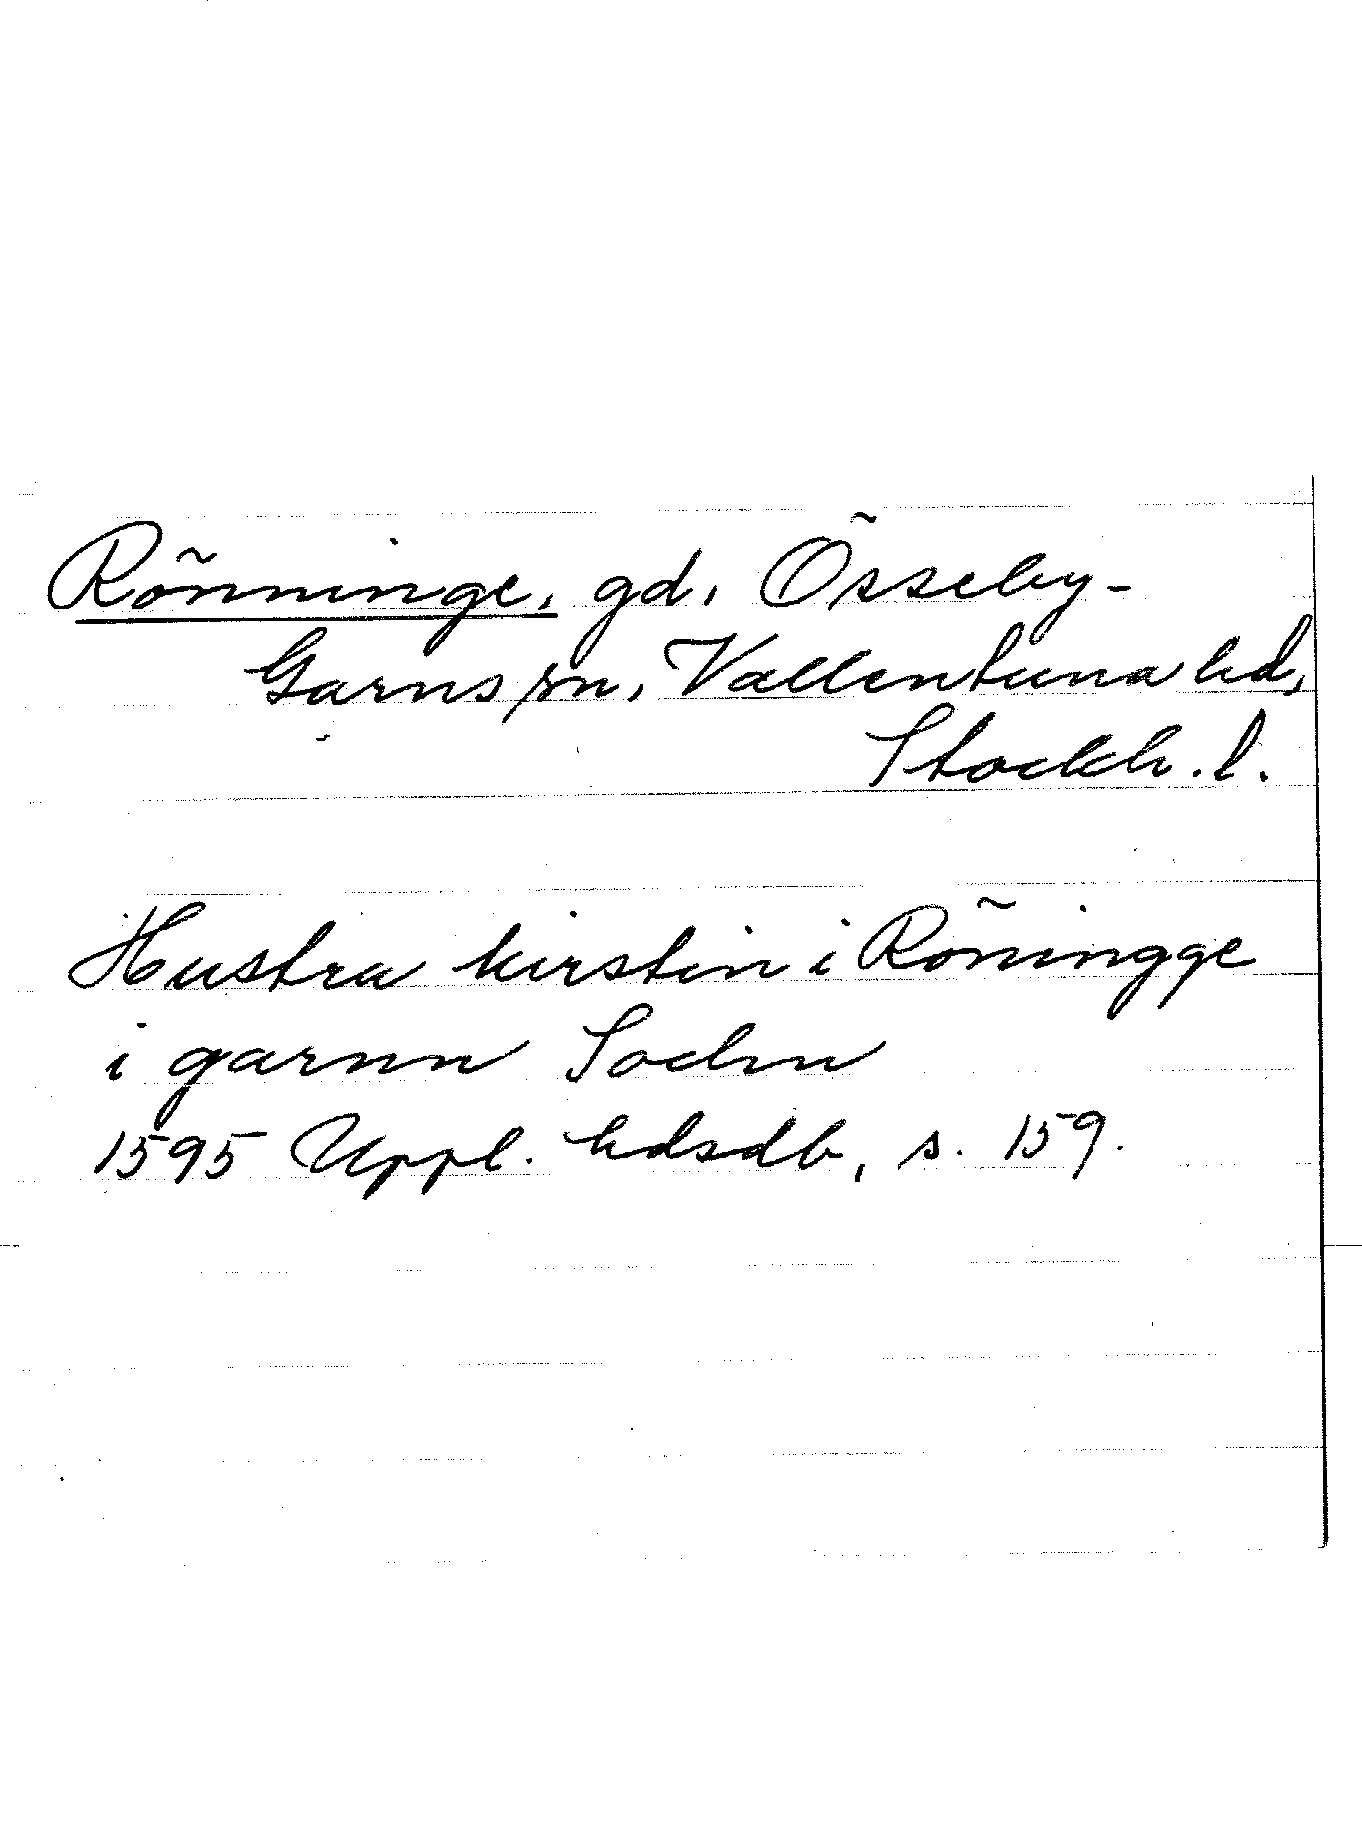 Rönninge, gd, Össeby-
Garns sn, Vallentuna hd,
Stockh. l.
Hustru kirstin i Röningge
i garnn Sochn
1595 Uppl. hdsdb, s. 159.